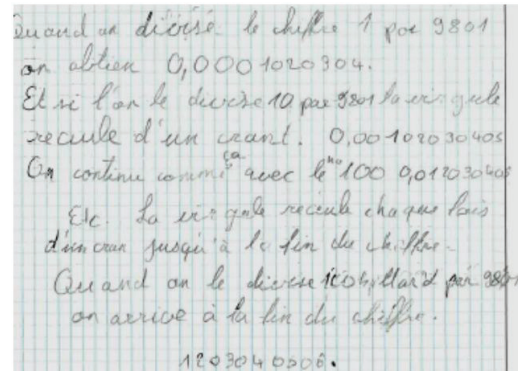 Quand on divise le chiffre 1 par 9801
on obtien 0,0001020304.
Et si l'on le divise 10 par 9801 la virgule
recule d'un crant. 0,0010203040
On continu comme ça avec le no 100 0,01203040
Etc. La virgule recule chaque fois
d'un cran jusqu'à la fin du chiffre.
Quand on le divise 100 par 9801
on arrive à la fin du chiffre.
1203040506.